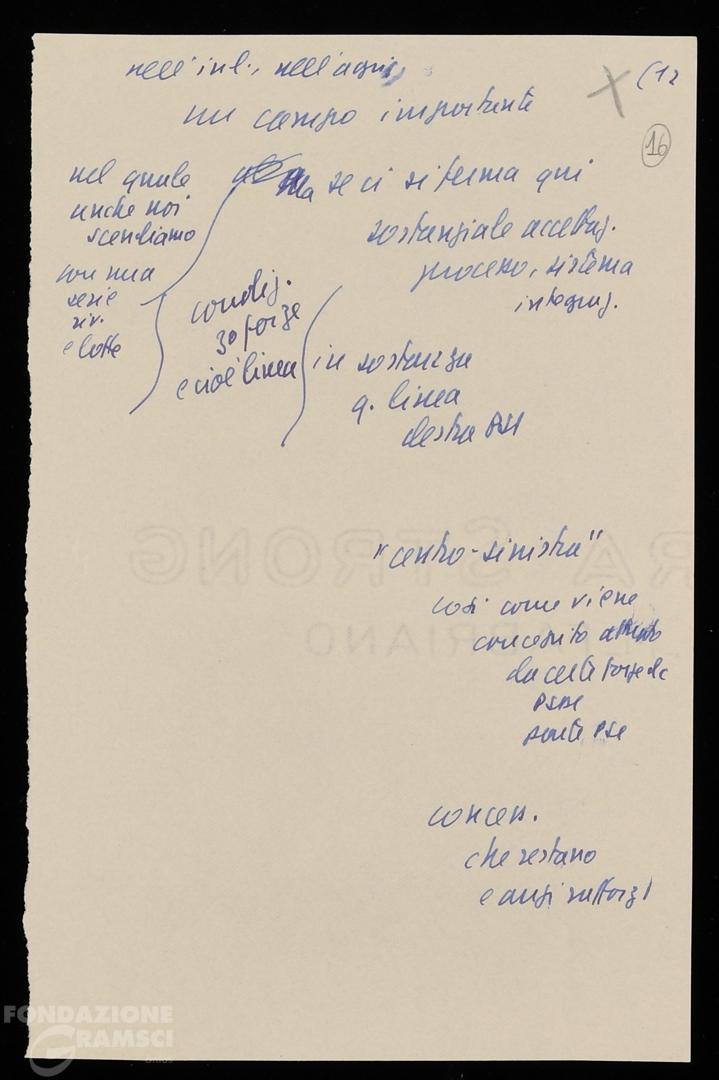 nell'int., nell'agric.
(12
un campo importante
16
nel quale
anche noi
scendiamo
con una
serie
riv.
e lotte
condiz.
30 forze
e cioè linea
Ma se ci si ferma qui
sostanziale accettaz.
processo, sistema
integraz.
in sostanza
q. linea
destra PSI
"centro-sinistra"
così come viene
concepito
da certe forze dc
PSDI
parte PSI
concess.
che restano
e anzi rafforz
FONDAZIONE
GRAMSCI
Onlus
RA STRONG
FABRIANO